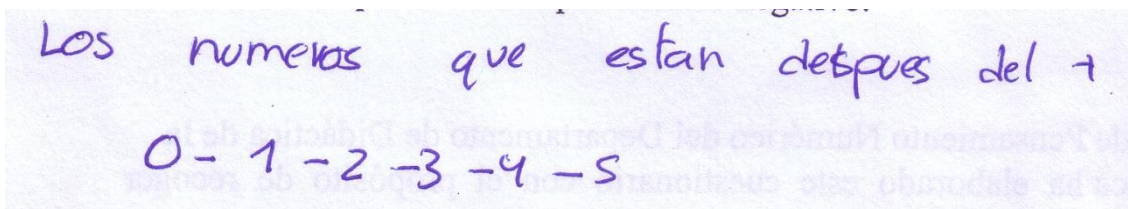 Los numeros que estan detspues del +
0 - 1 - 2 - 3 - 4 - 5